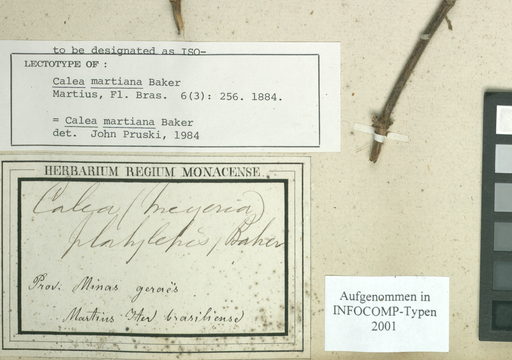 to be designated as ISO-
LECTOTYPE OF :
Calea martiana Baker
Martius, Fl. Bras. 6(3): 256. 1884.
= Calea martiana Baker
det. John Pruski, 1984
HERBARIUM REGIUM MONACENSE.
Calea (Meyeria)
platylepis, Baker
Prov. Minas geraës
Martius Iter brasiliense
Aufgenommen in
INFOCOMP-Typen
2001